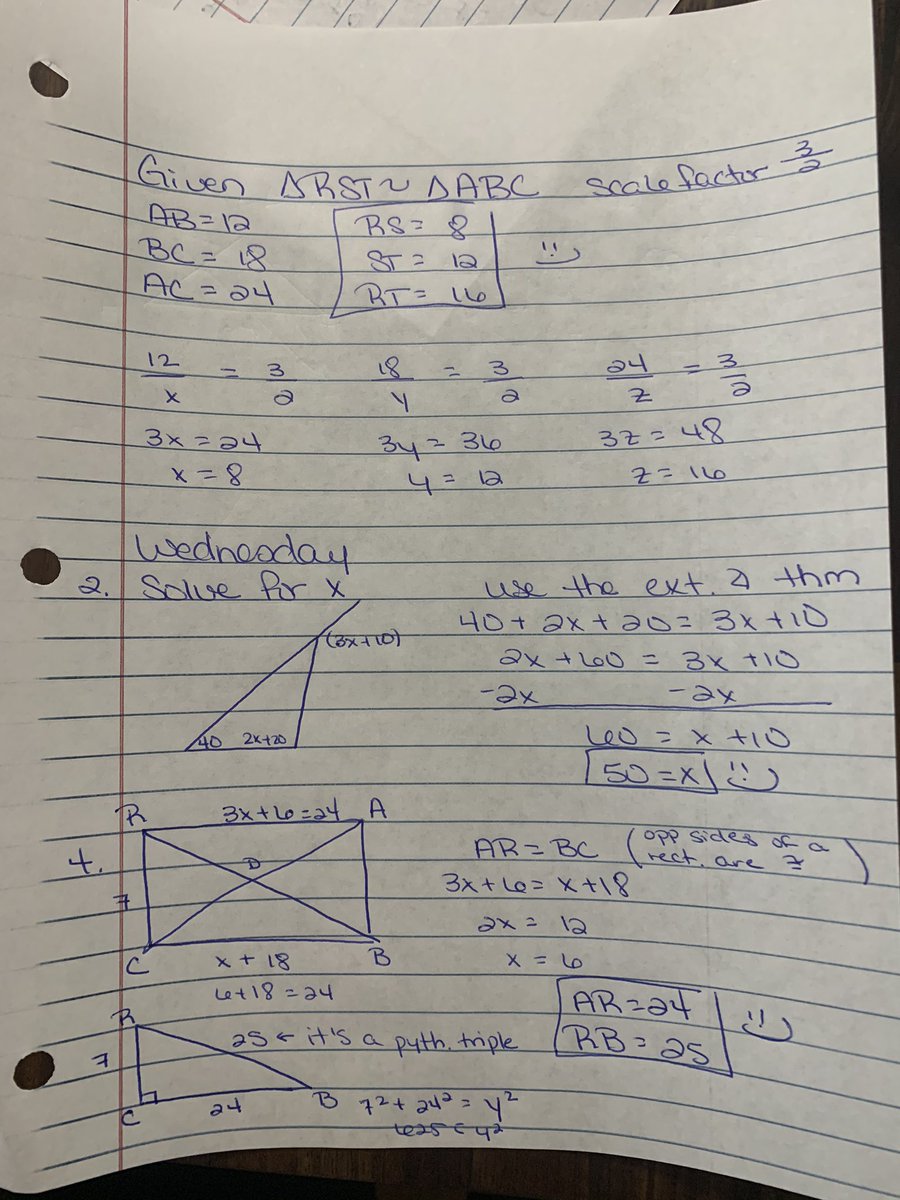 Given △RST ~ △ABC scale factor 3/2
AB = 12 RS = 8
BC = 18 ST = 12 :)
AC = 24 RT = 16
12/x = 3/2 18/y = 3/2 24/z = 3/2
3x = 24 3y = 36 3z = 48
x = 8 y = 12 z = 16
Wednesday
2. Solve for x use the ext. ∠ thm
40 + 2x + 20 = 3x + 10
(3x+10)
2x + 60 = 3x + 10
-2x -2x
40 2x+20
60 = x + 10
50 = x :)
R 3x+6=24 A
4. D AR = BC (opp sides of a rect. are ≅)
7 3x+6 = x+18
2x = 12
C x + 18 B x = 6
6+18 = 24
AR = 24
RB = 25 :)
R
7 25 ← it's a pyth. triple
C 24 B 7² + 24² = y²
625 = y²